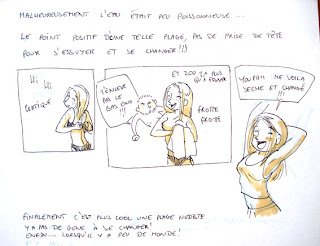 MALHEUREUSEMENT L'EAU ÉTAIT PEU POISSONEUSE...
LE POINT POSITIF D'UNE TELLE PLAGE, PAS DE PRISE DE TÊTE
POUR S'ESSUYER ET SE CHANGER!!!
HI HI
HI
S'ENLÈVE
PAS LE
BAS OUH
!!!
ET ZOU Y'A PLUS
FROTTE
FROTTE
YOUPIII ME VOILÀ
SECHE ET CHANGÉ
!!!
FINALEMENT C'EST PLUS COOL UNE PLAGE NUDISTE
Y'A PAS DE GENE À SE CHANGER!
ENFIN... LORSQU'IL Y A PEU DE MONDE!